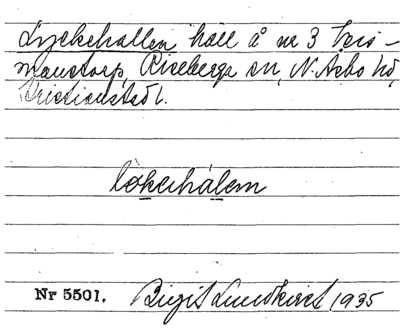 Lyckehallen, häll å nr 3 Fers-
manstorp, Riseberga sn, N. Åsbo hd,
Kristianstads l.
lökehálen
Nr 5501. Birgit Lundkvist 1935